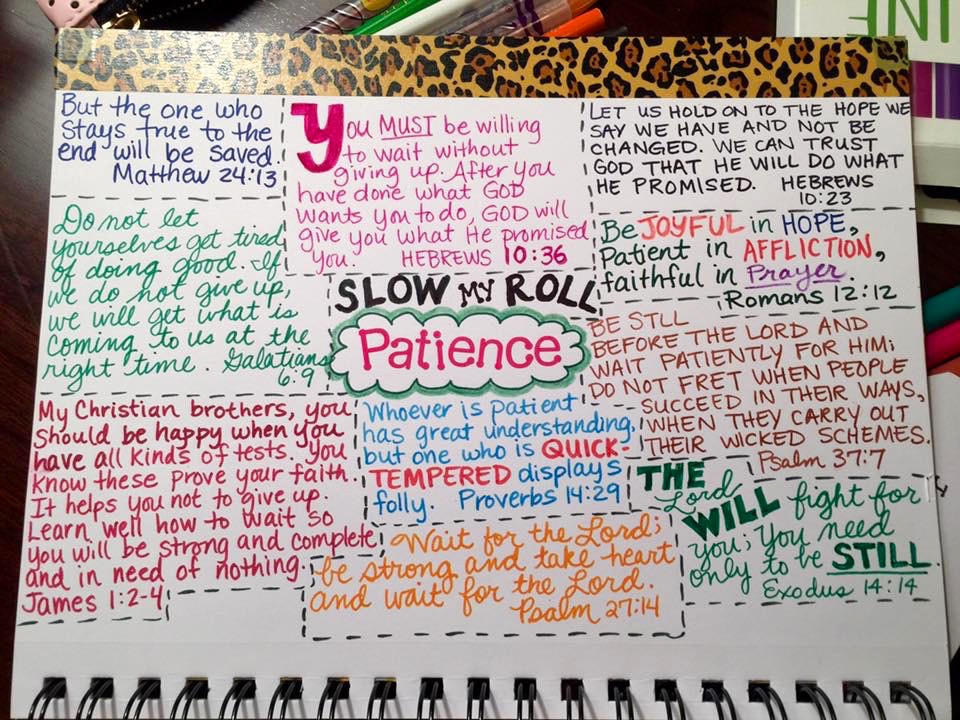 But the one who
stays true to the
end will be saved.
Matthew 24:13
You MUST be willing
to wait without
giving up. After you
have done what GOD
wants you to do, GOD will
give you what He promised
you. HEBREWS 10:36
LET US HOLD ON TO THE HOPE WE
SAY WE HAVE AND NOT BE
CHANGED. WE CAN TRUST
GOD THAT HE WILL DO WHAT
HE PROMISED. HEBREWS
10:23
Do not let
yourselves get tired
of doing good. If
we do not give up,
we will get what is
coming to us at the
right time. Galatians
6:9
Be JOYFUL in HOPE,
Patient in AFFLICTION,
faithful in Prayer.
Romans 12:12
SLOW MY ROLL
Patience
BE STILL
BEFORE THE LORD AND
WAIT PATIENTLY FOR HIM;
DO NOT FRET WHEN PEOPLE
SUCCEED IN THEIR WAYS,
WHEN THEY CARRY OUT
THEIR WICKED SCHEMES.
Psalm 37:7
My Christian brothers, you
should be happy when you
have all kinds of tests. You
know these prove your faith.
It helps you not to give up.
Learn well how to wait so
you will be strong and complete
and in need of nothing.
James 1:2-4
Whoever is patient
has great understanding,
but one who is QUICK-
TEMPERED displays
folly. Proverbs 14:29
Wait for the Lord;
be strong and take heart
and wait for the Lord.
Psalm 27:14
THE
Lord
WILL fight for
you; you need
only to be STILL.
Exodus 14:14